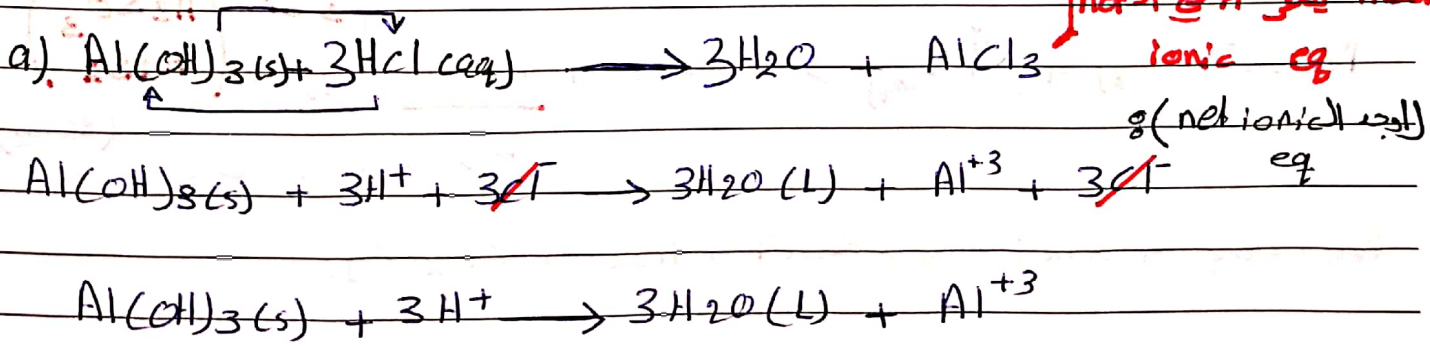 a) Al(OH)3(s) + 3HCl (aq) → 3H2O + AlCl3
ionic eq
(net ionic اوجد ال
eq
Al(OH)3(s) + 3H+ + 3Cl- → 3H2O (L) + Al+3 + 3Cl-
Al(OH)3(s) + 3H+ → 3H2O (L) + Al+3